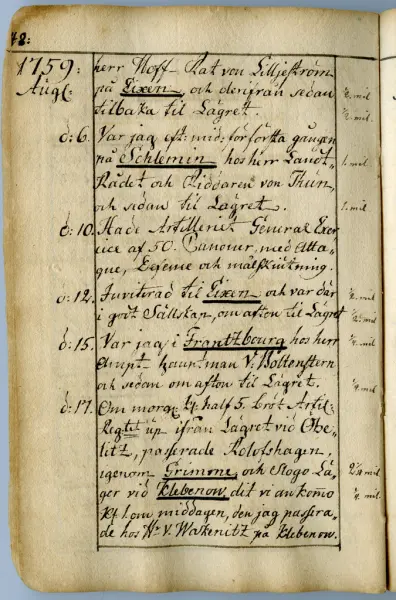 78:
1759: herr Hoff-Rat von Lilljeström
Augl: på Eixen och derifrån sedan ½ mil
tilbaka til Lägret. ½ mil
d: 6. Var jag eft: mid: för första gången
på Schlemin hos herr Landt- 1. mil
Rådet och Riddaren von Thun,
och sedan til Lägret. 1. mil
d: 10. Hade Artilleriet General Exer
cice af 50. Canoner, med Atta„
que, och målskiutning.
d: 12. Inviterad til Eixen och var där ½ mil
i godt Sällskap, om afton til Lägret ½ mil
d: 15. Var jag i Frantzbourg hos herr ¼ mil
Ampt-hauptman V. Boltenstern
och sedan om afton til Lägret. ¼ mil
d: 17. Om morg: kl: half 5. bröt Artil-
Regtet up ifrån Lägret vid Öbe„
litz, passerade Rolofshagen,
igenom Grimme, och slogo Lä„ 2¼ mil
ger vid Klebenow, dit vi ankomo ¼ mil
kl 1 om middagen, den jag passera„
de hos Hr V. Wakenitz på Klebenow.